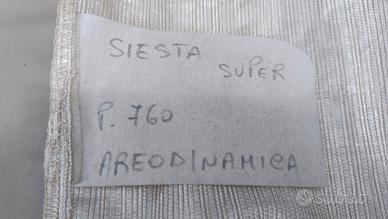 SIESTA
SUPER
P. 760
AREODINAMICA
subito